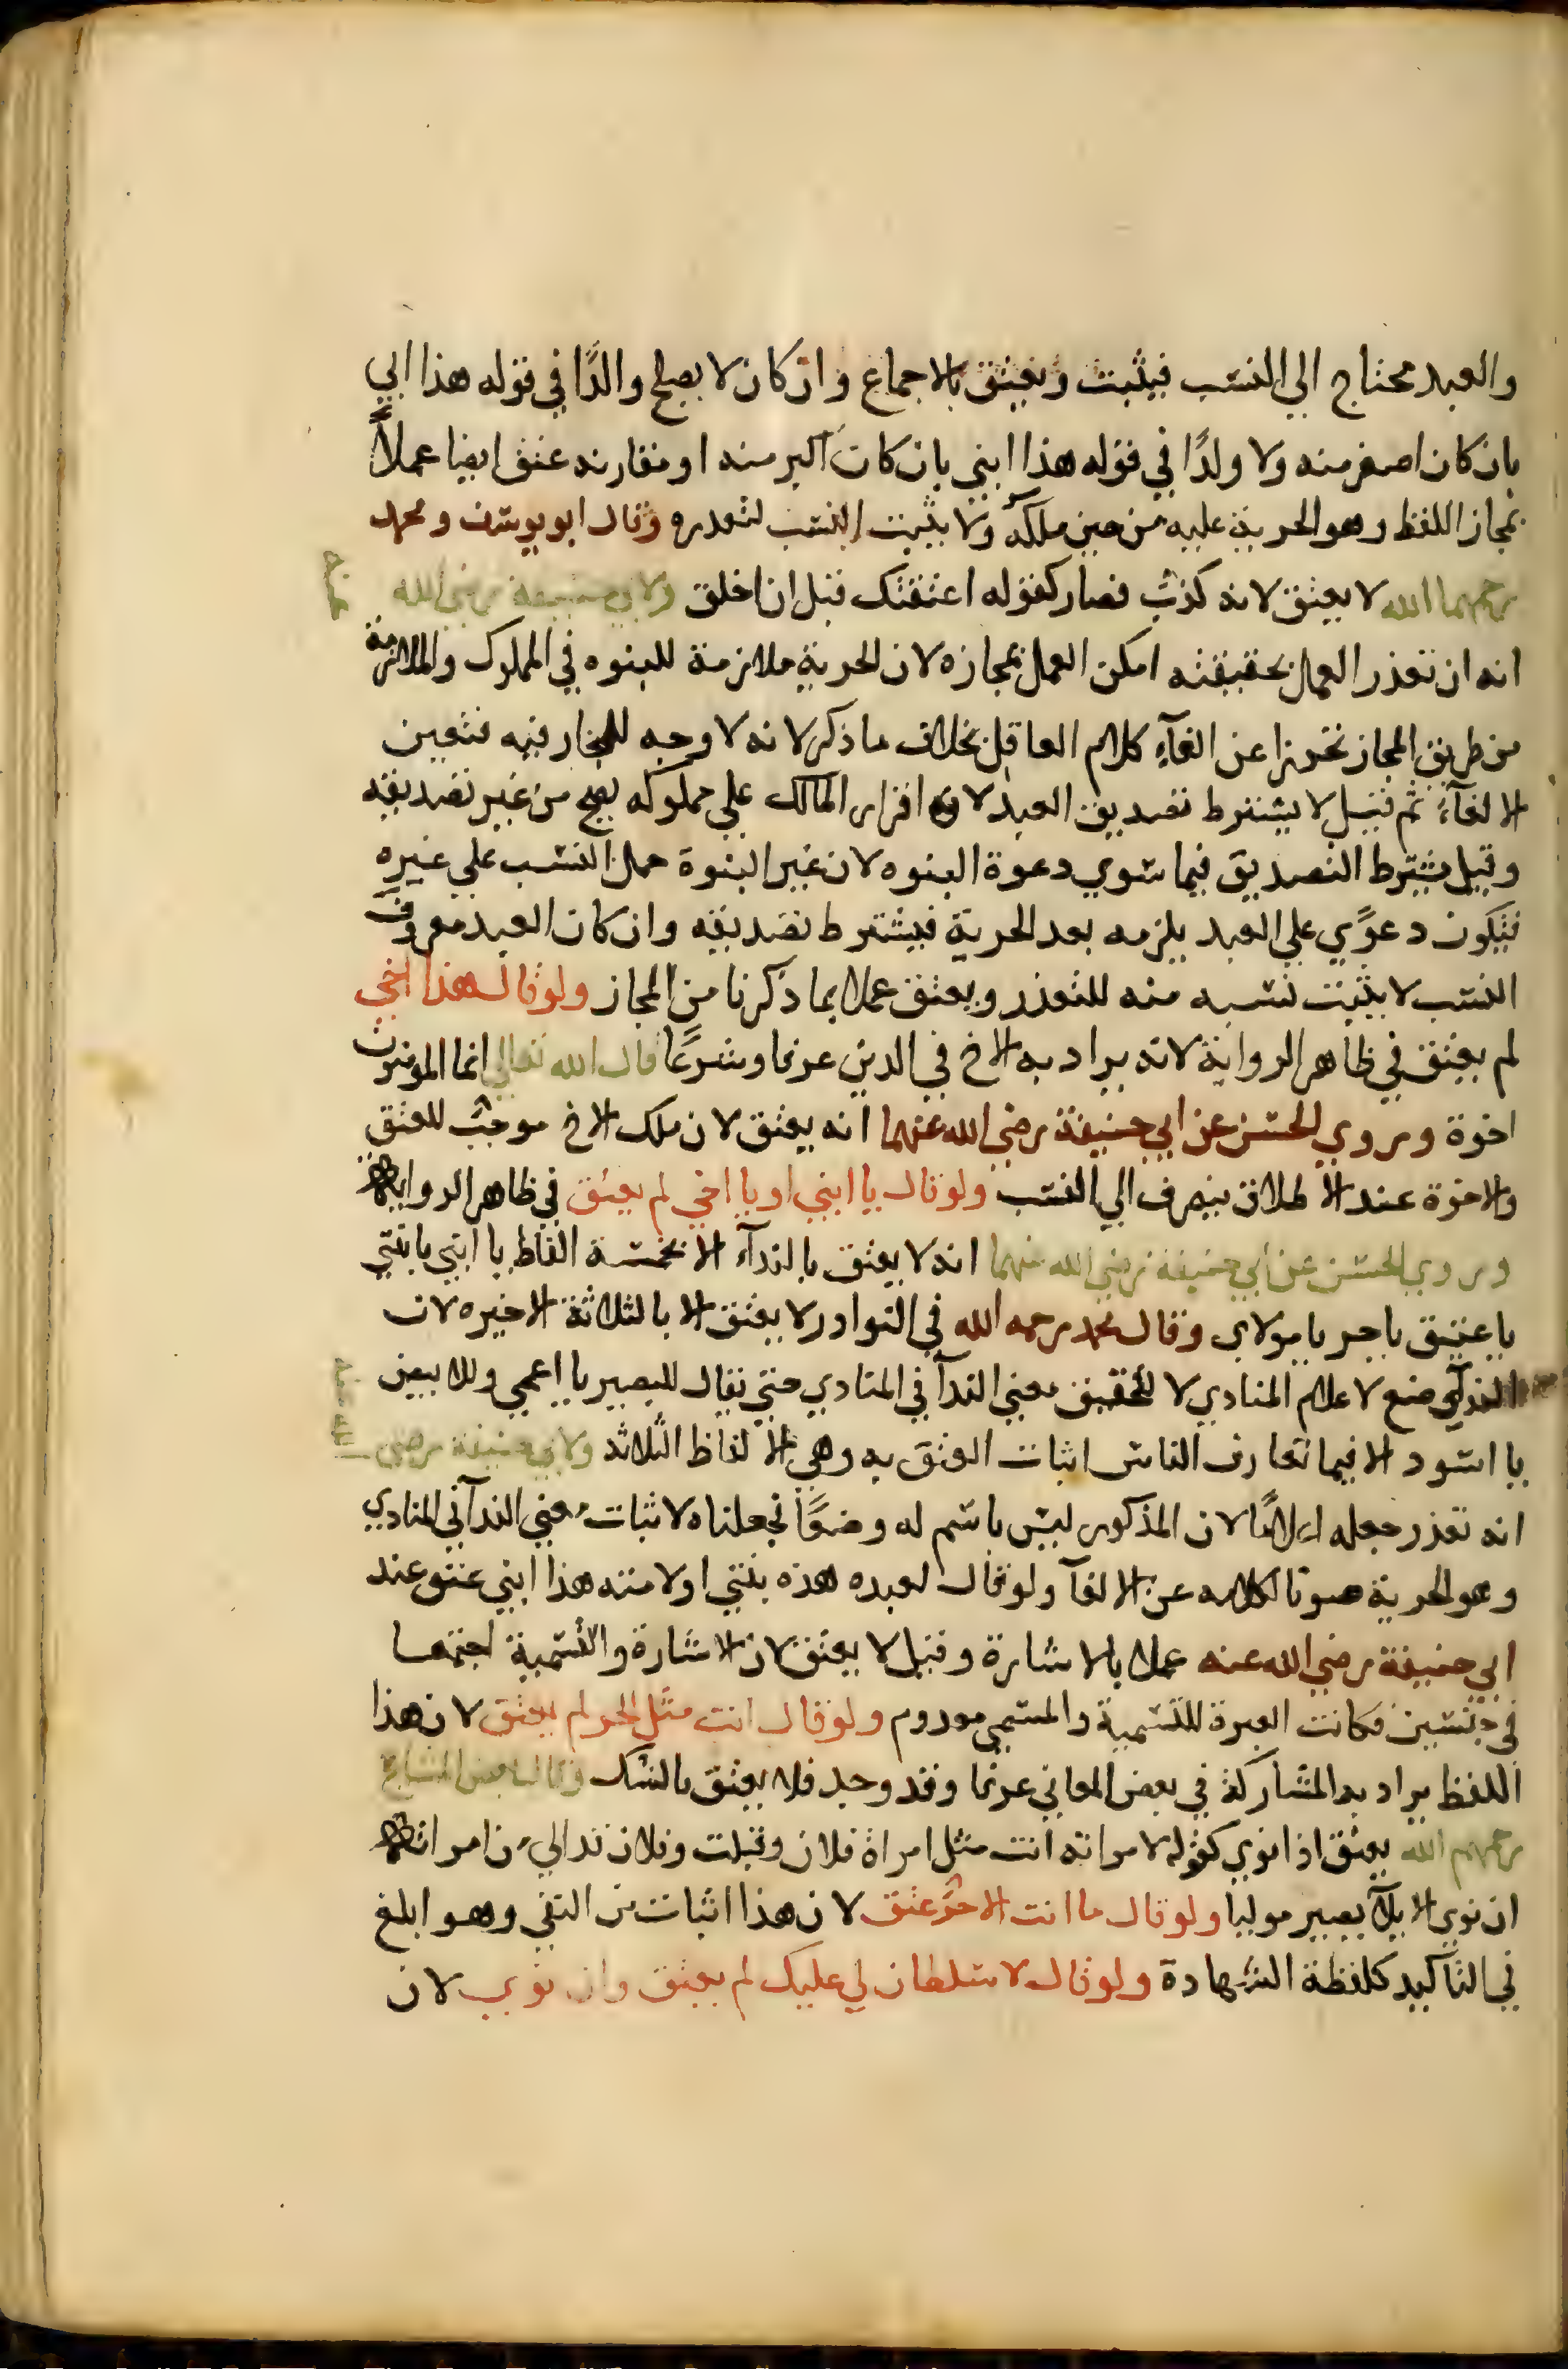 والعبد محتاج الي النسب فيثبت ويعتق بالاجماع وان كان لا يصلح والدًا في قوله هذا ابي
بان كان اصغر منه ولا ولدًا في قوله هذا ابني بان كان اكبر منه او مقارنه عتق ايضا عملاً
بمجاز اللفظ وهو الحرية عليه من حين ملكه ولا يثبت النسب لتعذره وقال ابو يوسف ومحمد
رحمهما الله لا يعتق لانه كذب فصار كقوله اعتقتك قبل ان اخلق ولابي حنيفة رضي الله عنه
انه ان تعذر العمل بحقيقته امكن العمل بمجازه لان الحرية ملازمة للبنوه في المملوك والملازمة
من طريق المجاز تحرزا عن الغآء كلام العاقل بخلاف ما ذكر لانه لا وجه للمجاز فيه فتعين
الالغآء ثم قيل لا يشترط تصديق العبد لان اقرار المالك علي مملوكه يصح من غير تصديقه
وقيل يشترط التصديق فيما سوي دعوة البنوه لان غير البنوة حمل النسب علي غيره
فيكون دعوًي علي العبد يلزمه بعد الحرية فيشترط تصديقه وان كان العبد معروف
النسب لا يثبت نسبه منه للتعذر ويعتق عملا بما ذكرنا من المجاز ولو قال هذا اخي
لم يعتق في ظاهر الرواية لانه يراد به الاخ في الدين عرفا وشرعًا قال الله تعالي انما المومنون
اخوة وروي الحسن عن ابي حنيفة رضي الله عنهما انه يعتق لان ملك الاخ موجب للعتق
والاخوة عند الاطلاق ينصرف الي النسب ولو قال يا ابني او يا اخي لم يعتق في ظاهر الرواية
وروي الحسن عن ابي حنيفة رضي الله عنهما انه لا يعتق بالندآء الا بخمسة الفاظ يا ابني يا بنتي
يا عتيق يا حر يا مولاي وقال محمد رحمه الله في النوادر لا يعتق الا بالثلاثة الاخيره لان
الندآ وضع لاعلام المنادي لا لتحقيق معني الندآ في المنادي حتي يقال للبصير يا اعمي وللابيض
يا اسود الا فيما تعارف الناس اثبات العتق به وهي الالفاظ الثلاثه ولابي حنيفة رضي الله عنه
انه تعذر جعله اعلامًا لان المذكور ليس باسم له وضعًا فجعلناه لاثبات معني الندآ في المنادي
وهو الحرية صونا لكلامه عن الالغآ ولو قال لعبده هذه بنتي او لامته هذا ابني عتق عند
ابي حنيفة رضي الله عنه عملا بالاشارة وقيل لا يعتق لان الاشارة والتسمية اجتمعا
في جنسين فكانت العبرة للتسمية والمسمي معدوم ولو قال انت مثل الحر لم يعتق لان هذا
اللفظ يراد به المشاركة في بعض المعاني عرفا وقد وجد فلا يعتق بالشك وقال بعض المشايخ
رحمهم الله يعتق اذا نوي كقوله لامراته انت مثل امراة فلان وفلان الي من امراته
ان نوي الايلآ يصير موليا ولو قال ما انت الا حر عتق لان هذا اثبات من النفي وهو ابلغ
في التاكيد كلفظة الشهادة ولو قال لا سلطان لي عليك لم يعتق وان نوي لان